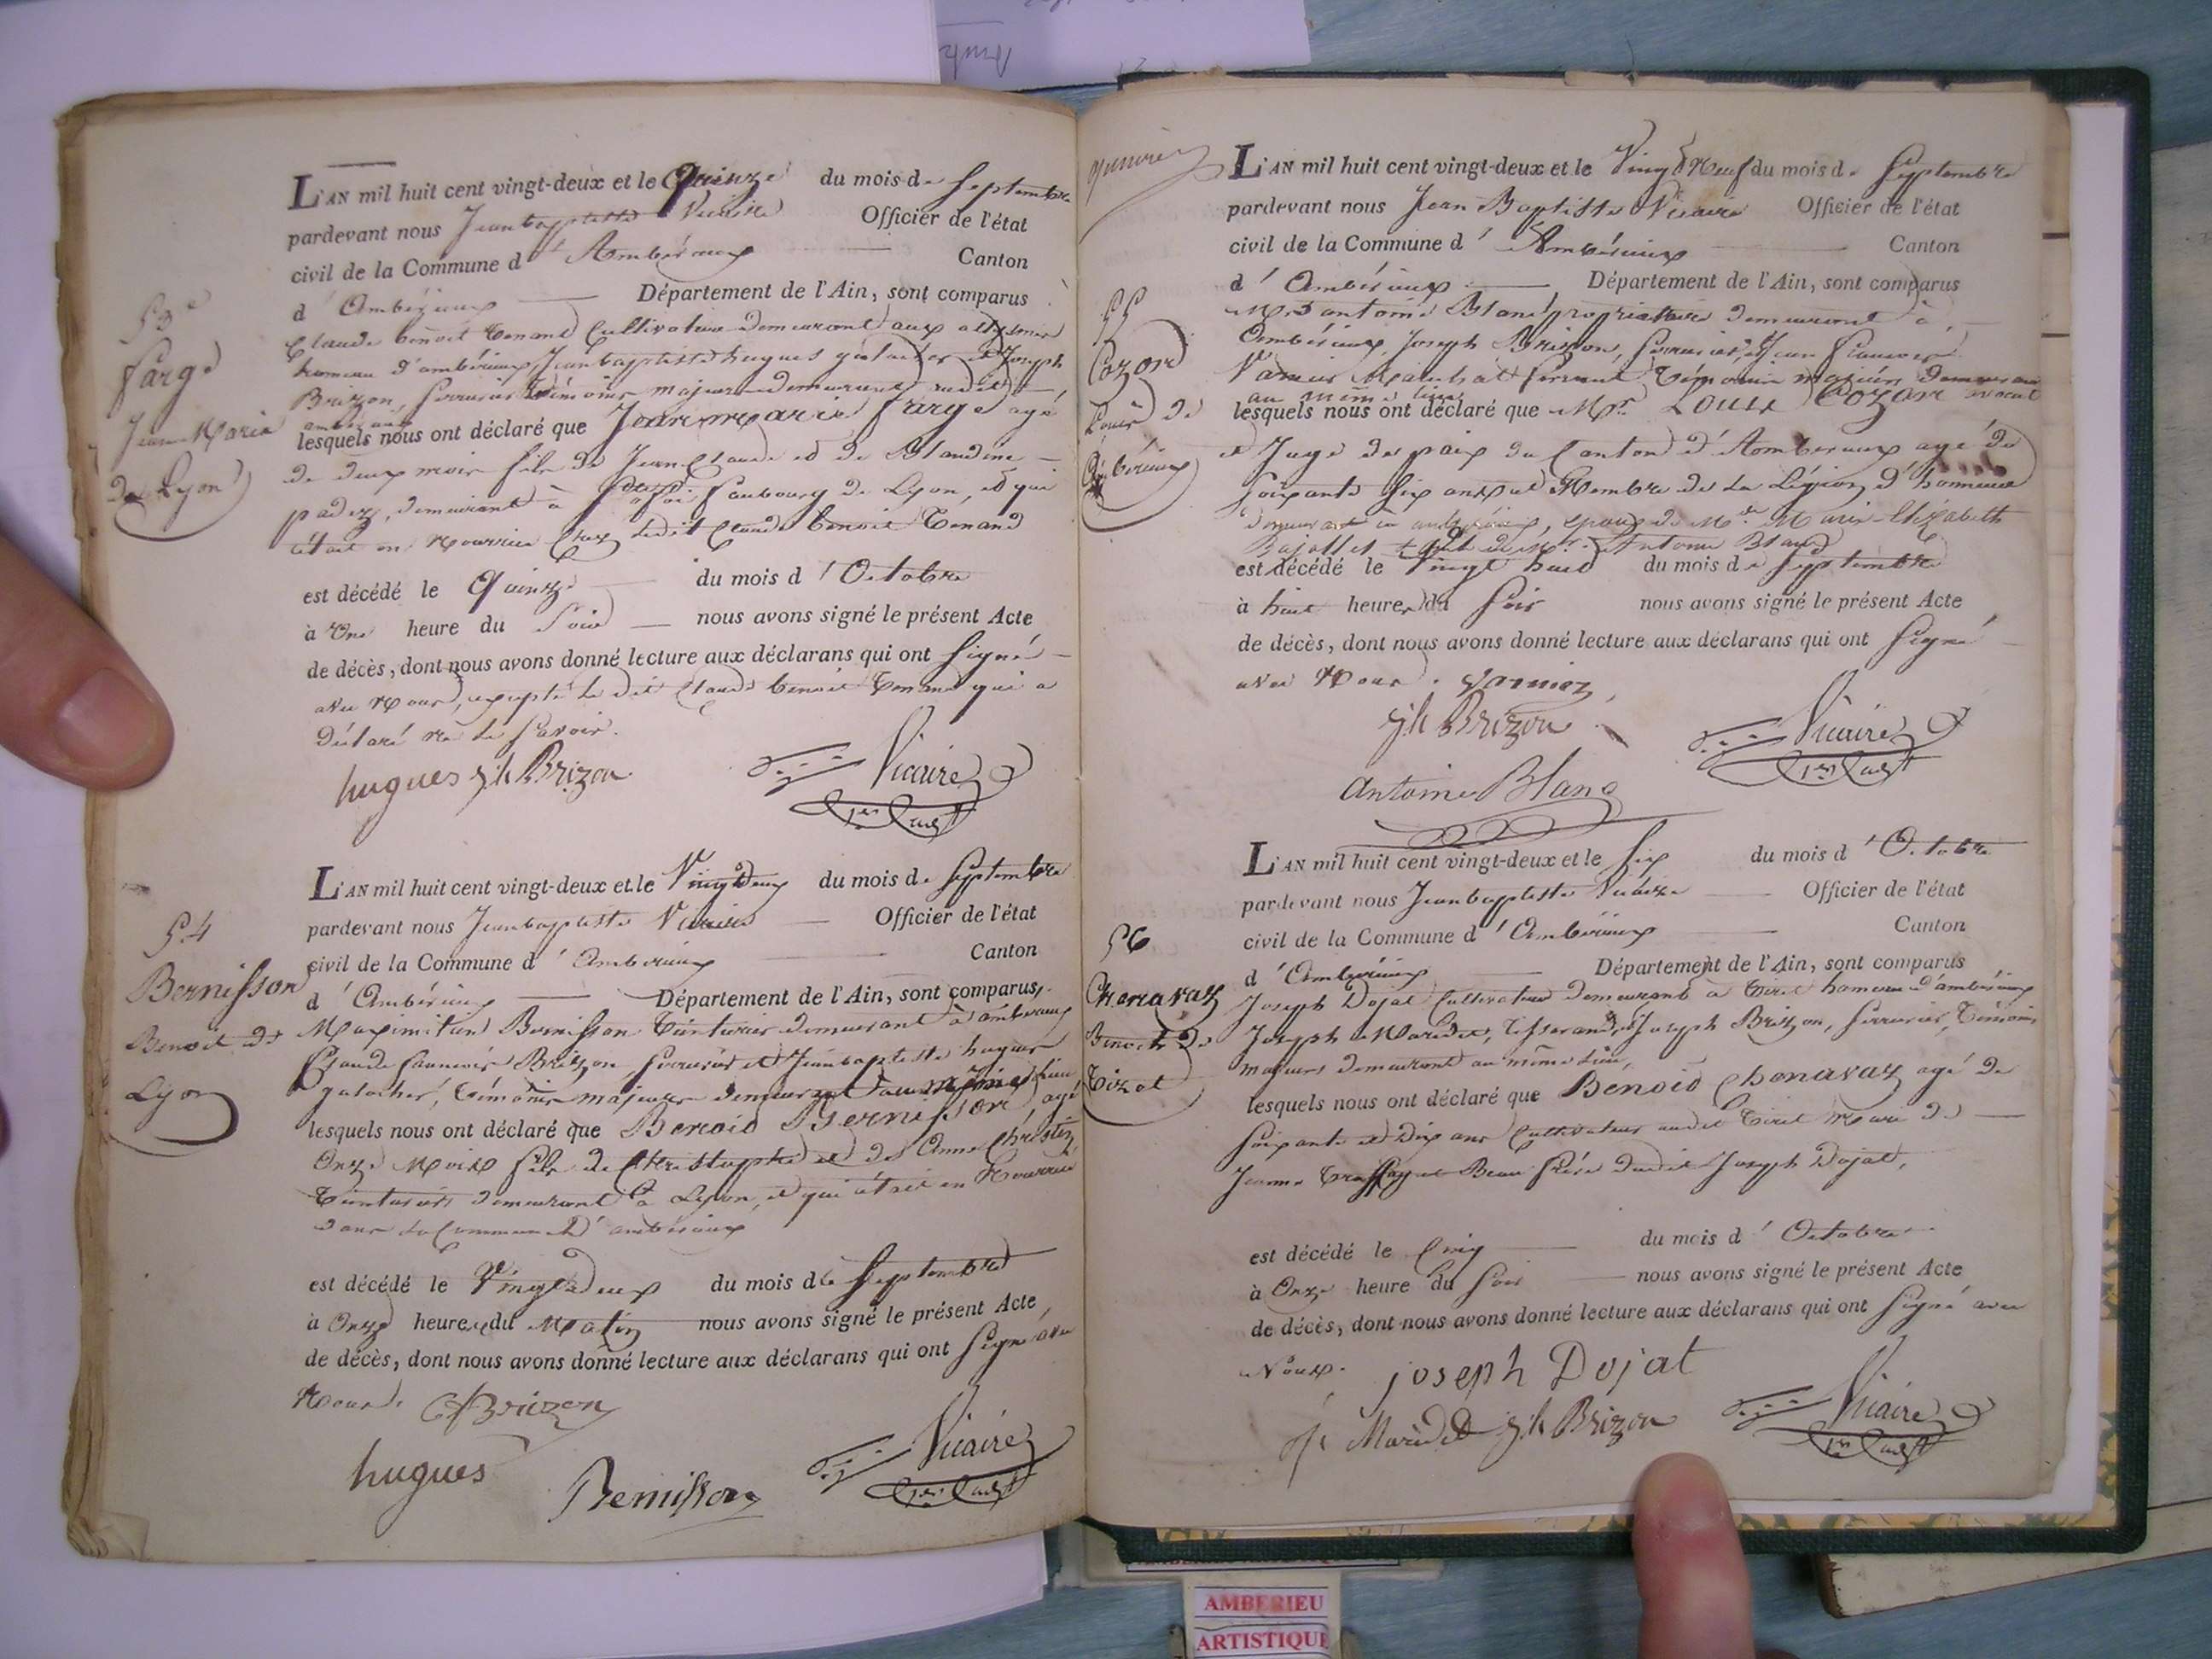 L'AN mil huit cent vingt-deux et le Quinze du mois de Septembre
pardevant nous Jean baptiste Vicaire Officier de l'état
civil de la Commune d' Ambérieux Canton
d' Ambérieux Département de l'Ain, sont comparus
Claude benoit Tenand Cultivateur demeurant aux
hameau d'ambérieux, Jeanbaptiste hugues galocher et Joseph
Brizon, Serrurier Témoins majeurs demeurant audit
ambérieux
lesquels nous ont déclaré que Jean marie Farge agé
de deux mois fils de Jean Claude et de Blandine
padez, demeurant à faubourg de Lyon, et qui
était en Nourrice Chez ledit Claude benoit Tenand
est décédé le Quinze du mois d' Octobre
à Une heure du Soir nous avons signé le présent Acte
de décès, dont nous avons donné lecture aux déclarans qui ont Signé
avec Nous, excepté le dit Claude benoit Tenand qui a
Déclaré ne le Savoir.
hugues jh Brizon Vicaire
53e
Farge
Jean Marie
de Lyon
L'AN mil huit cent vingt-deux et le Vingt Deux du mois de Septembre
pardevant nous Jeanbaptiste Vicaire Officier de l'état
civil de la Commune d' Ambérieux Canton
d' Ambérieux Département de l'Ain, sont comparus
Maximilien Bernisson Teinturier demeurant à ambérieux
Claude francois Brizon Serrurier et Jeanbaptiste hugues
galocher, Témoins majeurs demeurant au même lieu
lesquels nous ont déclaré que Benoit Bernisson, agé
Onze Mois fils de Christophe et de Anne Christin
Teinturiers demeurant à Lyon, et qui était en Nourrice
dans la Commune d'ambérieux
est décédé le Vingt deux du mois de Septembre
à Onze heures du Matin nous avons signé le présent Acte,
de décès, dont nous avons donné lecture aux déclarans qui ont Signé avec
Nous. CfBrizon
hugues Bernisson Vicaire
54
Bernisson
Benoit de
Lyon
L'AN mil huit cent vingt-deux et le Vingt Neuf du mois de Septembre
pardevant nous Jean Baptiste Vicaire Officier de l'état
civil de la Commune d' Ambérieux Canton
d' Ambérieux Département de l'Ain, sont comparus
Mrs antoine Blanc propriétaire demeurant à
Ambérieux, Joseph Brizon, Serrurier, et Jean francois
Varnier Maréchal ferrant Témoins majeurs demeurant
au même lieu
lesquels nous ont déclaré que Mr. Louis Cozon avocat
et Juge de paix du Canton d'Ambérieux agé de
Soixante Six ans et Membre de la Légion d'honneur
demeurant à ambérieux, époux de Mde. Marie-Elizabeth
Bajollet Antoine Blanc
est décédé le Vingt huit du mois de Septembre
à huit heures du Soir nous avons signé le présent Acte
de décès, dont nous avons donné lecture aux déclarans qui ont Signé
avec Nous. Varnier
jh Brizon Vicaire
Antoine Blanc
55
Cozon
Louis de
Ambérieux
L'AN mil huit cent vingt-deux et le Six du mois d' Octobre
pardevant nous Jeanbaptiste Vicaire Officier de l'état
civil de la Commune d' Ambérieux Canton
d' Ambérieux Département de l'Ain, sont comparus
Joseph Dojat Cultivateur demeurant à Tiret hameau d'ambérieux
Joseph Maridet, Tisserand, et Joseph Brizon, Serrurier, Témoins
majeurs demeurant au même lieu,
lesquels nous ont déclaré que Benoit Chenavaz agé de
Soixante et Dix ans Cultivateur audit Tiret Mari de
Jeanne et Beau frère dudit Joseph Dojat,
est décédé le Cinq du mois d' Octobre
à Onze heure du Soir nous avons signé le présent Acte
de décès, dont nous avons donné lecture aux déclarans qui ont Signé avec
Nous. joseph Dojat
Maridet jh Brizon Vicaire
56
Chenavaz
Benoit de
Tiret
AMBERIEU
ARTISTIQUE